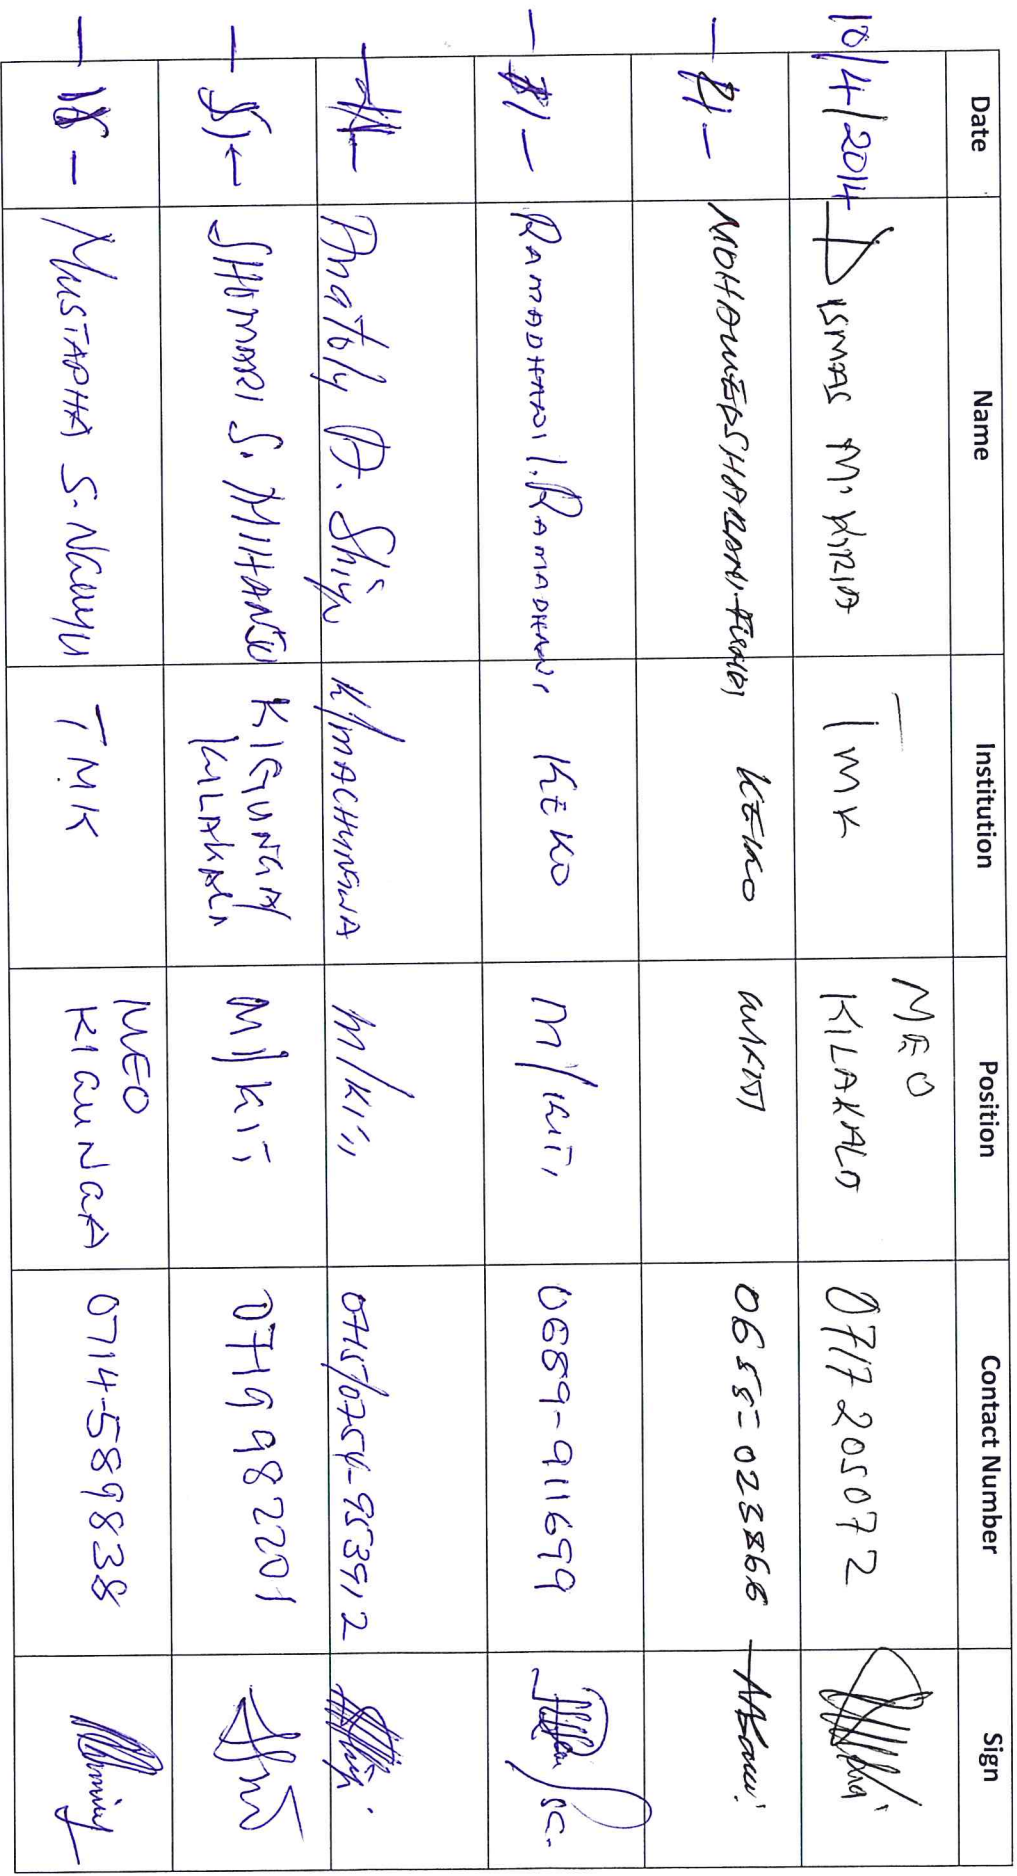 Date Name Institution Position Contact Number Sign
10/4/2014 DISMAS M. KIRIA TMK MEO KILAKALA 0717 205072
KEKO 0655-023866
RAMADHANI I. RAMADHANI KEKO M/KITI 0689-911699
Anatoly A. K/MACHUNGWA M/KITI 0715/0754-953912
SHOMARI S. KIGUNGA/ KILAKALA M/KITI 0719982201
MUSTAPHA S. TMK MEO KIGUNGA 0714-589838